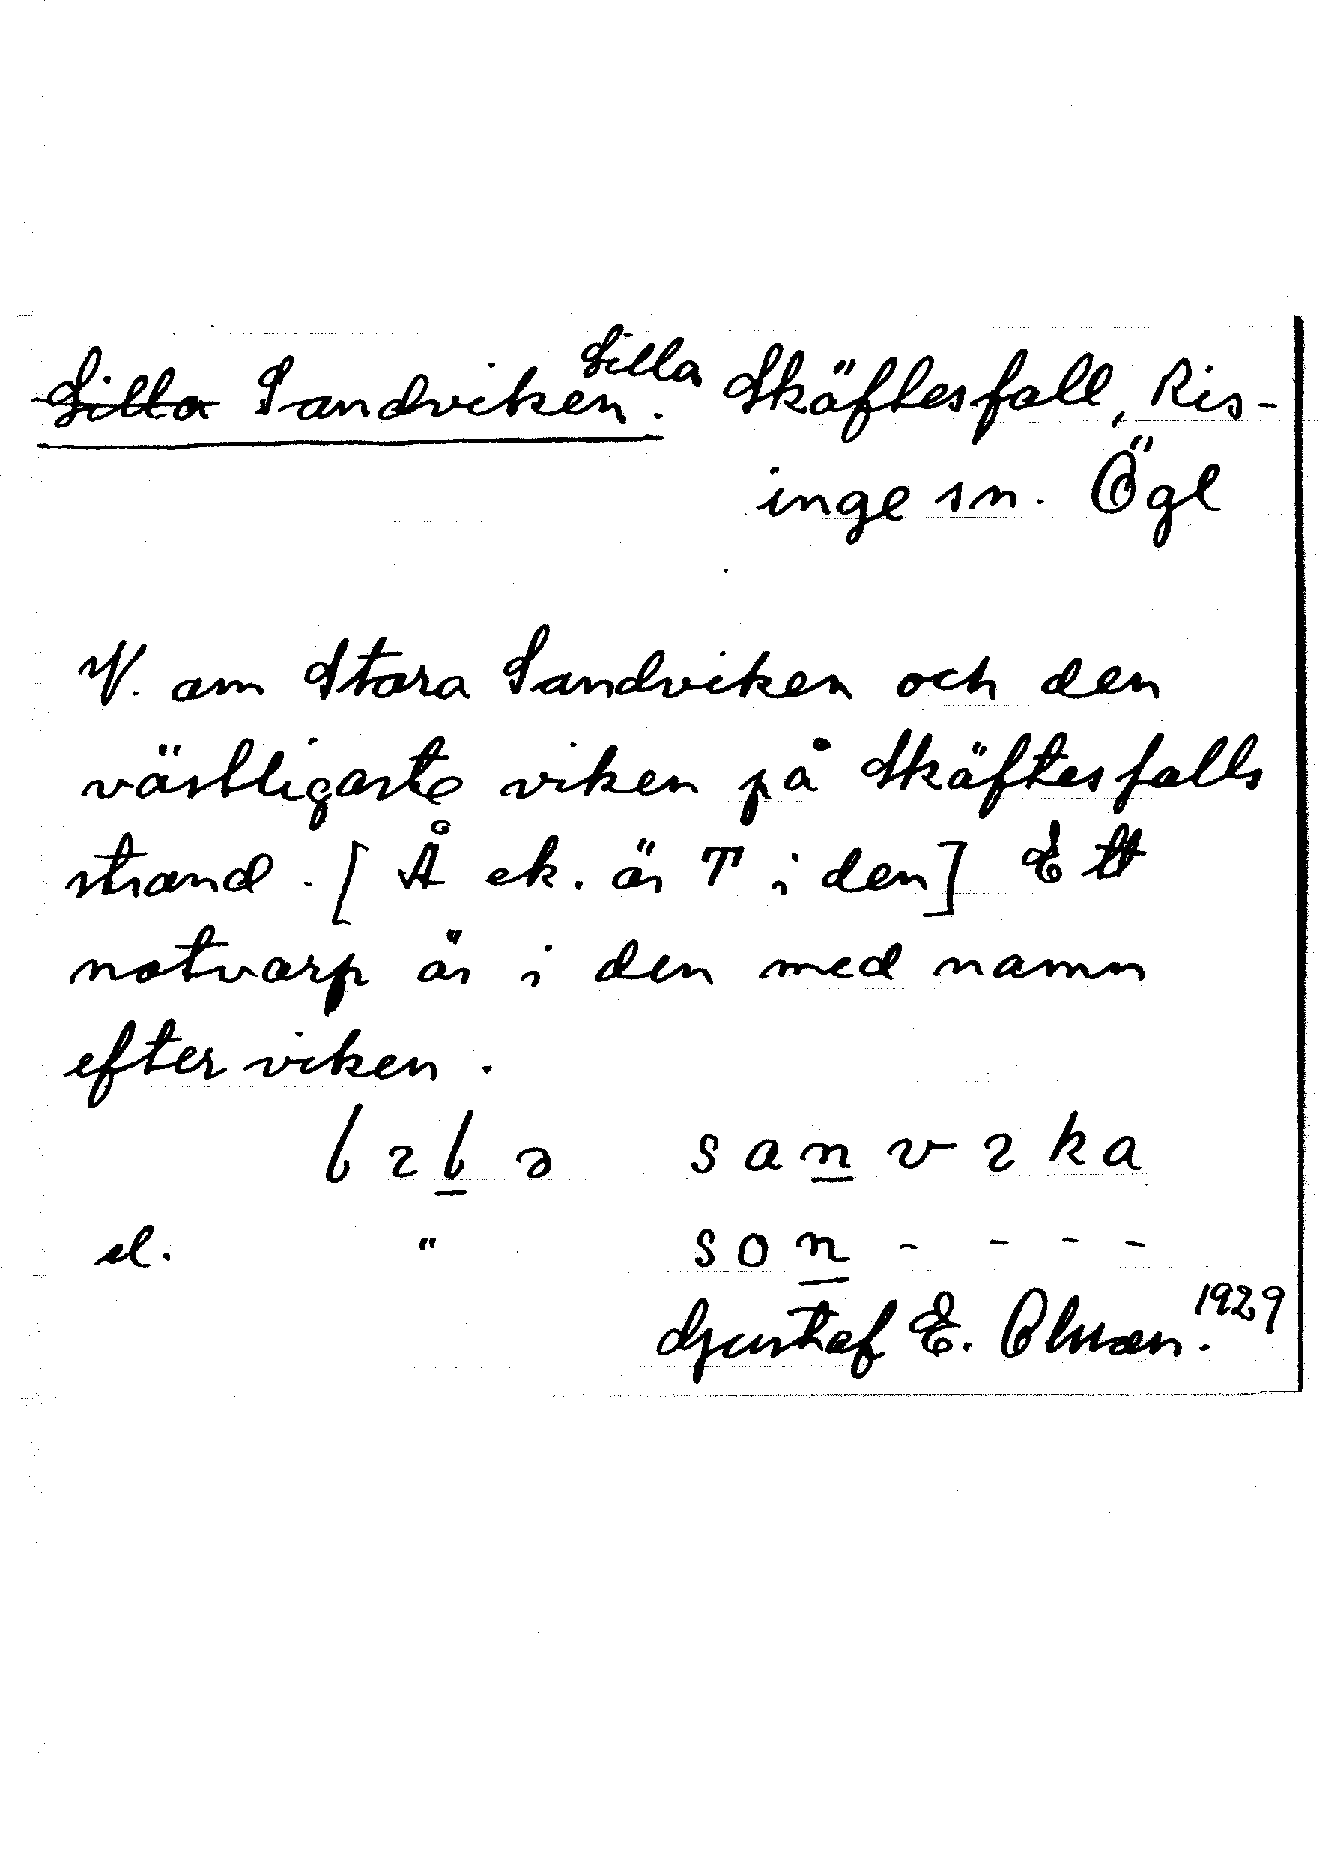 Lilla Sandviken. Lilla Skäftesfall, Ris-
inge sn. Ögl
V. om Stora Sandviken och den
västligaste viken på Skäftesfalls
strand. [Å ek. är T i den] Ett
notvarp är i den med namn
efter viken.
lɩlə sanvɩka
el. " son - - - -
Gustaf E. Olsson. 1929